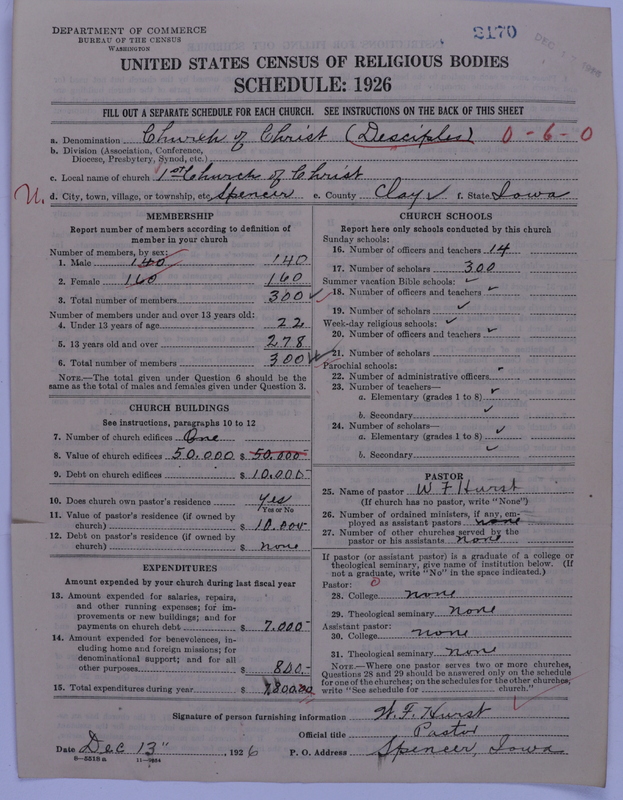 DEPARTMENT OF COMMERCE
BUREAU OF THE CENSUS
WASHINGTON
2170
UNITED STATES CENSUS OF RELIGIOUS BODIES
SCHEDULE: 1926
FILL OUT A SEPARATE SCHEDULE FOR EACH CHURCH. SEE INSTRUCTIONS ON THE BACK OF THIS SHEET
a. Denomination Church of Christ (Desciples) 0-6-0
b. Division (Association, Conference, Diocese, Presbytery, Synod, etc.)
c. Local name of church 1st Church of Christ
U. d. City, town, village, or township, etc. Spencer e. County Clay f. State Iowa
MEMBERSHIP
Report number of members according to definition of
member in your church
Number of members, by sex:
1. Male 140 140
2. Female 160 160
3. Total number of members 300
Number of members under and over 13 years old:
4. Under 13 years of age 22
5. 13 years old and over 278
6. Total number of members 300
NOTE.—The total given under Question 6 should be the
same as the total of males and females given under Question 3.
CHURCH BUILDINGS
See instructions, paragraphs 10 to 12
7. Number of church edifices One
8. Value of church edifices 50.000 $ 50.000-
9. Debt on church edifices $ 10.000-
10. Does church own pastor's residence Yes
(Yes or No)
11. Value of pastor's residence (if owned by
church) $ 10.000
12. Debt on pastor's residence (if owned by
church) $ none
EXPENDITURES
Amount expended by your church during last fiscal year
13. Amount expended for salaries, repairs,
and other running expenses; for im-
provements or new buildings; and for
payments on church debt $ 7.000-
14. Amount expended for benevolences, in-
cluding home and foreign missions; for
denominational support; and for all
other purposes $ 800.-
15. Total expenditures during year $ 7,800.00
CHURCH SCHOOLS
Report here only schools conducted by this church
Sunday schools:
16. Number of officers and teachers 14
17. Number of scholars 300
Summer vacation Bible schools:
18. Number of officers and teachers
19. Number of scholars
Week-day religious schools:
20. Number of officers and teachers
21. Number of scholars
Parochial schools:
22. Number of administrative officers
23. Number of teachers—
a. Elementary (grades 1 to 8)
b. Secondary
24. Number of scholars—
a. Elementary (grades 1 to 8)
b. Secondary
PASTOR
25. Name of pastor W F Hurst
(If church has no pastor, write "None")
26. Number of ordained ministers, if any, em-
ployed as assistant pastors none
27. Number of other churches served by the
pastor or his assistants none
If pastor (or assistant pastor) is a graduate of a college or
theological seminary, give name of institution below. (If
not a graduate, write "No" in the space indicated.)
Pastor: 0
28. College none
29. Theological seminary none
Assistant pastor:
30. College none
31. Theological seminary none
NOTE.—Where one pastor serves two or more churches,
Questions 28 and 29 should be answered only on the schedule
for one of the churches; on the schedules for the other churches,
write "See schedule for church."
Signature of person furnishing information W. F. Hurst
Official title Pastor
Date Dec 13", 1926 P. O. Address Spencer, Iowa
8-5518a 11-9684